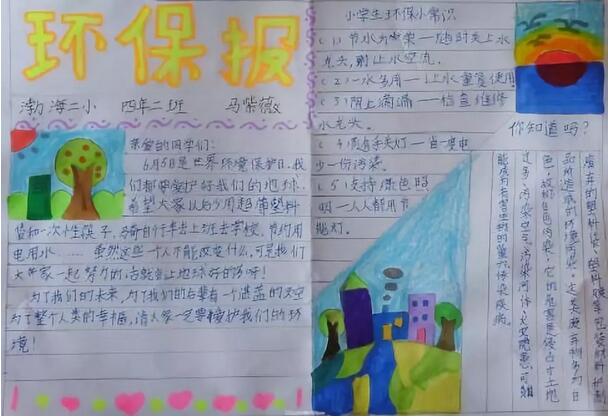 环保报
渤海二小 四年二班 马紫薇
亲爱的同学们：
6月5日是世界环境保护日，我
们都要爱护好我们的地球，
希望大家以后少用超薄塑料
袋和一次性筷子，多骑自行车去上班去学校，节约用
电用水……虽然这些一个人不能改变什么，可是我们
大家一起努力的话就会让地球好的多呀！
为了我们的未来，为了我们的后辈有一个湛蓝的天空
为了整个人类的幸福，请大家一定要爱护我们的环
境！
小学生环保小常识
（1）节水为荣——随时关上水
龙头，别让水空流。
（2）一水多用——让水重复使用
（3）阻止滴漏——检查维修
水龙头。
（4）随手关灯——省一度电
少一份污染。
（5）支持绿色照
明——人人都用节
能灯。
你知道吗？
废弃的塑料袋、塑料膜等包装材料扔到
所造成的环境污染。这类废弃物多为白
色，故称白色污染，它的危害是侵占土地
过多、污染空气、污染河体、火灾隐患，可
能成为有害生物的巢穴，传染疾病。